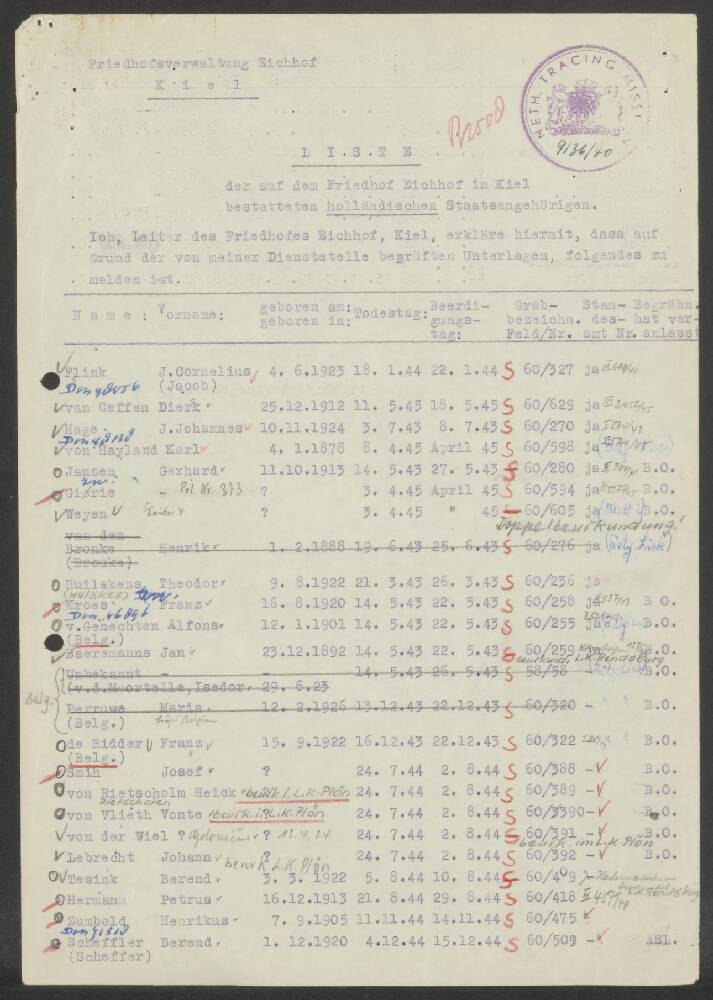 Friedhofsverwaltung Eichhof
K i e l
NETH. TRACING MISSI
9136/40
Brood
L I S T E
der auf dem Friedhof Eichhof in Kiel
bestatteten holländischen Staatsangehörigen.
Ich, Leiter des Friedhofes Eichhof, Kiel, erkläre hiermit, dass auf
Grund der von meiner Dienststelle geprüften Unterlagen, folgendes zu
melden ist.
N a m e : Vorname: geboren am: Todestag: Beerdi- Grab- Stan- Begräbn.
geboren in: gungs- bezeichn. des- hat ver-
tag: Feld/Nr. amt Nr. anlasst
Flink J.Cornelius 4. 6.1923 18. 1.44 22. 1.44 S 60/327 ja
(Jacob)
van Geffen Dierk 25.12.1912 11. 5.45 18. 5.45 S 60/629 ja
Hage J.Johannes 10.11.1924 3. 7.43 8. 7.43 S 60/270 ja
von Hayland Karl 4. 1.1878 8. 4.45 April 45 S 60/598 ja
Jansen Gerhard 11.10.1913 14. 5.43 27. 5.43 60/280 ja B.O.
Gierie - Pol Nr. 373 ? 3. 4.45 April 45 S 60/594 ja B.O.
Weyen ? 3. 4.45 " 45 60/605 ja B.O.
Doppelbeurkundung!
van den
Bronke Henrik 1. 2.1888 19. 6.43 25. 6.43 S 60/276 ja
(Brouke)
Huilskens Theodor 9. 8.1922 21. 3.43 26. 3.43 S 60/236 ja
(HUILSKES)
Kroes Franz 16. 8.1920 14. 5.43 22. 5.43 S 60/258 ja B.O.
v.Genechten Alfons 12. 1.1901 14. 5.43 22. 5.43 S 60/255 ja B.O.
(Belg.)
Baeremanns Jan 23.12.1892 14. 5.43 22. 5.43 S 60/259 B.O.
beurkund. L.K. Rendsburg
Unbekannt - - 14. 5.43 26. 5.43 S 58/58 B.O.
(v.d.Moortelle,Isedor 29. 6.23
Belg.
Perruwe Maria 12. 2.1926 13.12.43 22.12.43 S 60/320 - B.O.
(Belg.)
de Ridder Franz 15. 9.1922 16.12.43 22.12.43 S 60/322 B.O.
(Belg.)
Smih Josef ? 24. 7.44 2. 8.44 S 60/388 - B.O.
von Rietsholm Heick beurk. i. L.K. Plön 24. 7.44 2. 8.44 S 60/389 - B.O.
Rietschoten
von Vlieth Vonte beurk. i. L.K. Plön 24. 7.44 2. 8.44 S 60/3390 - B.O.
von der Wiel ? ? 24. 7.44 2. 8.44 S 60/391 - B.O.
beurk. im L.K. Plön
Lebrecht Johann ? 24. 7.44 2. 8.44 S 60/392 - B.O.
beurk. L.K. Plön
Tesink Berend 3. 3. 1922 5. 8.44 10. 8.44
Hermann Petrus 16.12.1913 21. 8.44 29. 8.44 S 60/418
Zumbold Henrikus 7. 9.1905 11.11.44 14.11.44 S 60/475
Scheffler Berend 1. 12.1920 4.12.44 15.12.44 S 60/509 - AEL.
(Scheffer)